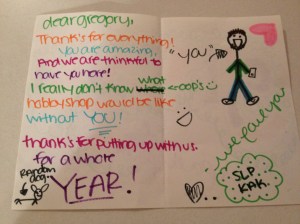 dear gregory,
Thanks for everything!
You are amazing,
And we are thinkful to
have you here!
I really don't know what
oops
hobbyshop would be like
without YOU!
thanks for putting up with us.
for a whole
YEAR!
Random
dog
"you"
we love you
SLP
KAK